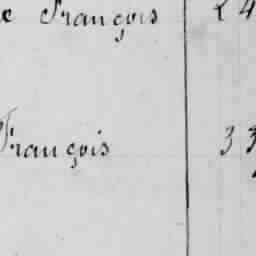 François 24
François 33